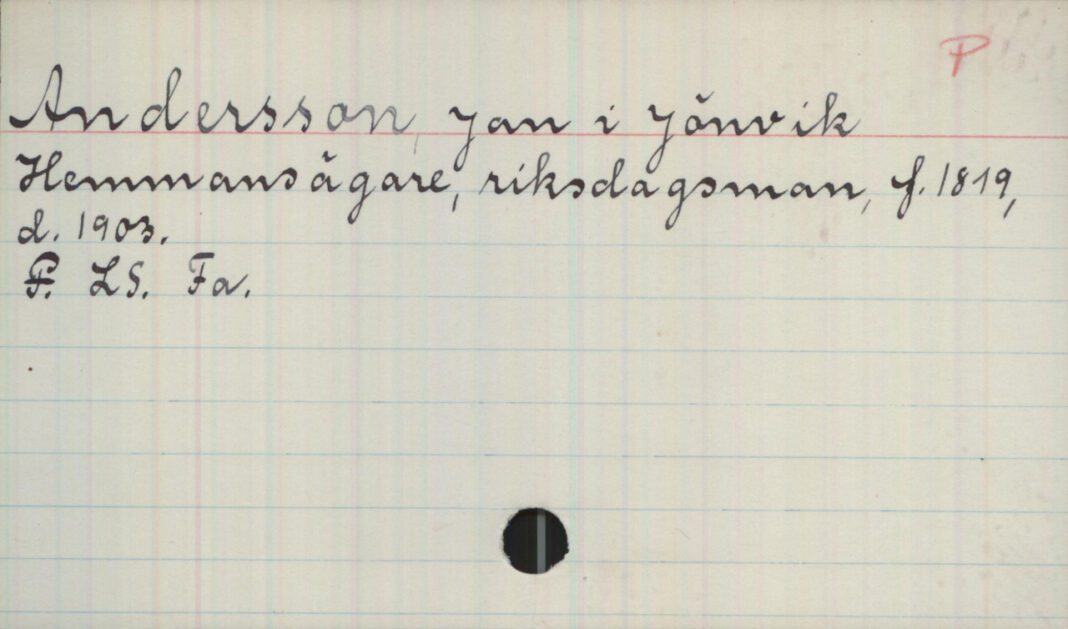 P
Andersson, Jan i Jönvik
Hemmansägare, riksdagsman, f. 1819,
d. 1903.
P. LS. Fa.